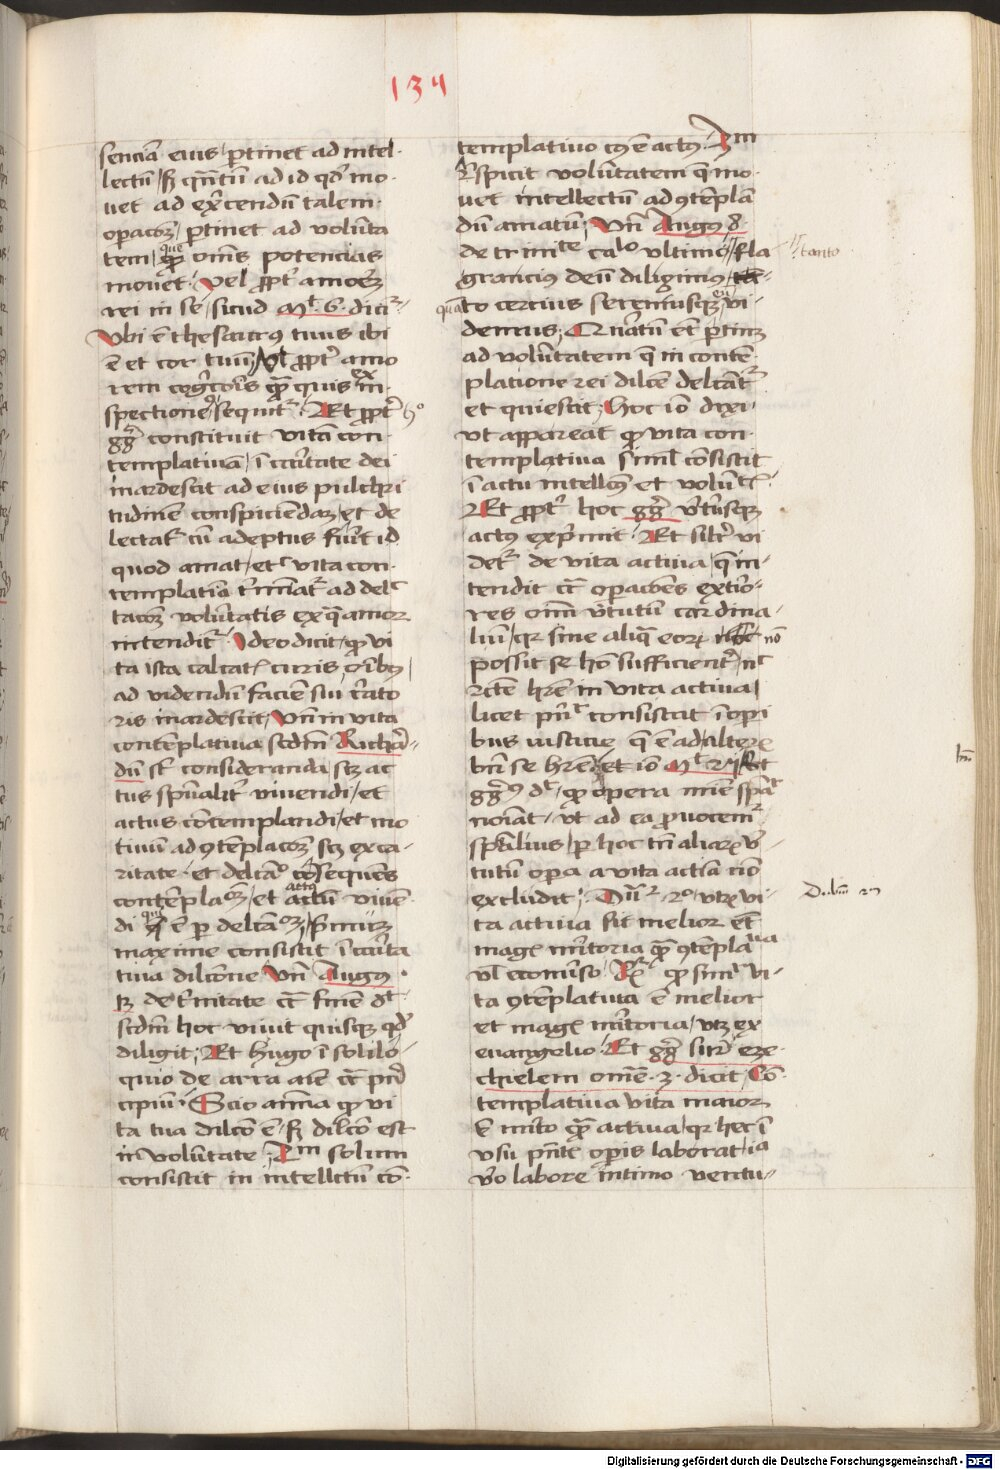 134
senciā eius / ꝑtinet ad intel-
lectū / sꝫ qͣntū ad id qd̛ mo-
uet ad ex̛cendū talem
opacōꝫ / ꝑtinet ad volūta
tem / que om̄s potencias
mouet · vel ꝓpt̛ amorē
rei in se / sicud Mͭ · 6 · dicit̛
Vbi ē thesaurus tuus ibi
ē et cor tuū / vl̛ ꝓpt̛ amo
rem cogͦcōis quā quis ex in-
spectione / sequit̛ · Et ꝓpt̛ hͦ
gg̛ constituit vitā con-
templatiuā / ī caritate dei
inardescit ad eius pulchri
tudinē conspiciēdaꝫ / et de
lectat̛ cū adeptus fūit id
quod amat / et vita con-
templatiā t̛minat̛ ad delc
tacōꝫ volūtatis ex qͣ amor
intendit̛ · Ideo dicit / ꝙ vi
ta ista calcatꝭ curis oībꝯ
ad videndū faciē sui c̛ato
ris inardescit / Vn̄ in vita
contēplatiua scd̄m Richar̛-
dū sꝉ consideranda scꝫ ac
tus spūalit̛ viuendi / et
actus cōtemplandi / et mo
tiuū ad ꝯtēplacōꝫ scꝫ ex ca-
ritate · et delcāͦ cōsequēs
contēplaͦꝫ / et actū viuen-
di qui ē ꝑ delcāͦꝫ /
maxime consistit ī cōtēpla
tiua dilcōne Vn̄ Augꝯ ·
tꝫ de t̛nitate cͣ finē dͭ ·
scd̄m hoc viuit quisqꝫ qd̛
diligit / Et hugo ī solilo-
quio de arra aīe cͣ pn̄
cipiū · Scio anīa ꝙ vi
ta tua dilcō ē · sꝫ dilcō est
in volūtate / Iᵐ solum
consistit in intellctū cō-
templatiuo cꝯ ē actꝯ · Iᵐ
r̛spicit volūtatem q̄ mo-
uet intellectū ad ꝯtēplā
dū amatū / Vn̄ Augꝯ 8
de trini ͭᵉ caͦ vltimo / fla
grancius deū diligimus /
tanto
quāto cercius sereniusqꝫ eū vi-
demus / Quātū et̄ ꝑtinꝫ
ad volūtatem q̄ in contē-
platione rei dilcē delcat̛
et quiescit / hoc iō dixi
vt appareat ꝙ vita con-
templatiua siml̛ cōsistit
ī actu intellꝯ et volūtꝭ
Et ꝓpt̛ hoc gg̛ vt̛usqꝫ
actus expͥmit · Et silit̛ vi
det̛ de vita actiua / q̄ in-
tendit cͣ opacōes extio-
res om̄ v̛tutū cardina-
liū / qꝛ sine aliqͣ eoꝝ nō
possit se hō sufficient̛ nͨ
rcte h̄re in vita actiua /
licet pn̄ ͣ consistat ī opi
bus iusticie q̄ ē ad alteꝝ
bn̄ se h̄re / et iō Mͭ vi
gg̛ꝯ dͭ / ꝙ opera mīe spāt̛
noīat · vt ad ea ꝓuocem̛
spālius / ꝑ hoc tn̄ aliaꝝ v̛
tutū opa a vita actīa nō
excludit · Dr̄ · 2ͦ · vtꝝ vi-
ta actiua sit melior et̄
magꝭ mitoria quā ꝯtēplaͥᵘᵃ
vl̛ ecōuiso · R̄ · ꝙ simͬ vi-
ta ꝯtēplatiua ē melior
et magꝭ mitoria / vtꝫ ex
euangelio · Et gg̛ sup̛ eze-
chielem om̄ē · 3 · dicit / Cō-
templatiua vita maior
ē mito quā actiua / qꝛ hec ī
vsu pn̄tꝭ opis laborat / iᵃ
v̛o labore intimo ventu-
Dubiū 2ᵐ
Digitalisierung gefördert durch die Deutsche Forschungsgemeinschaft - DFG